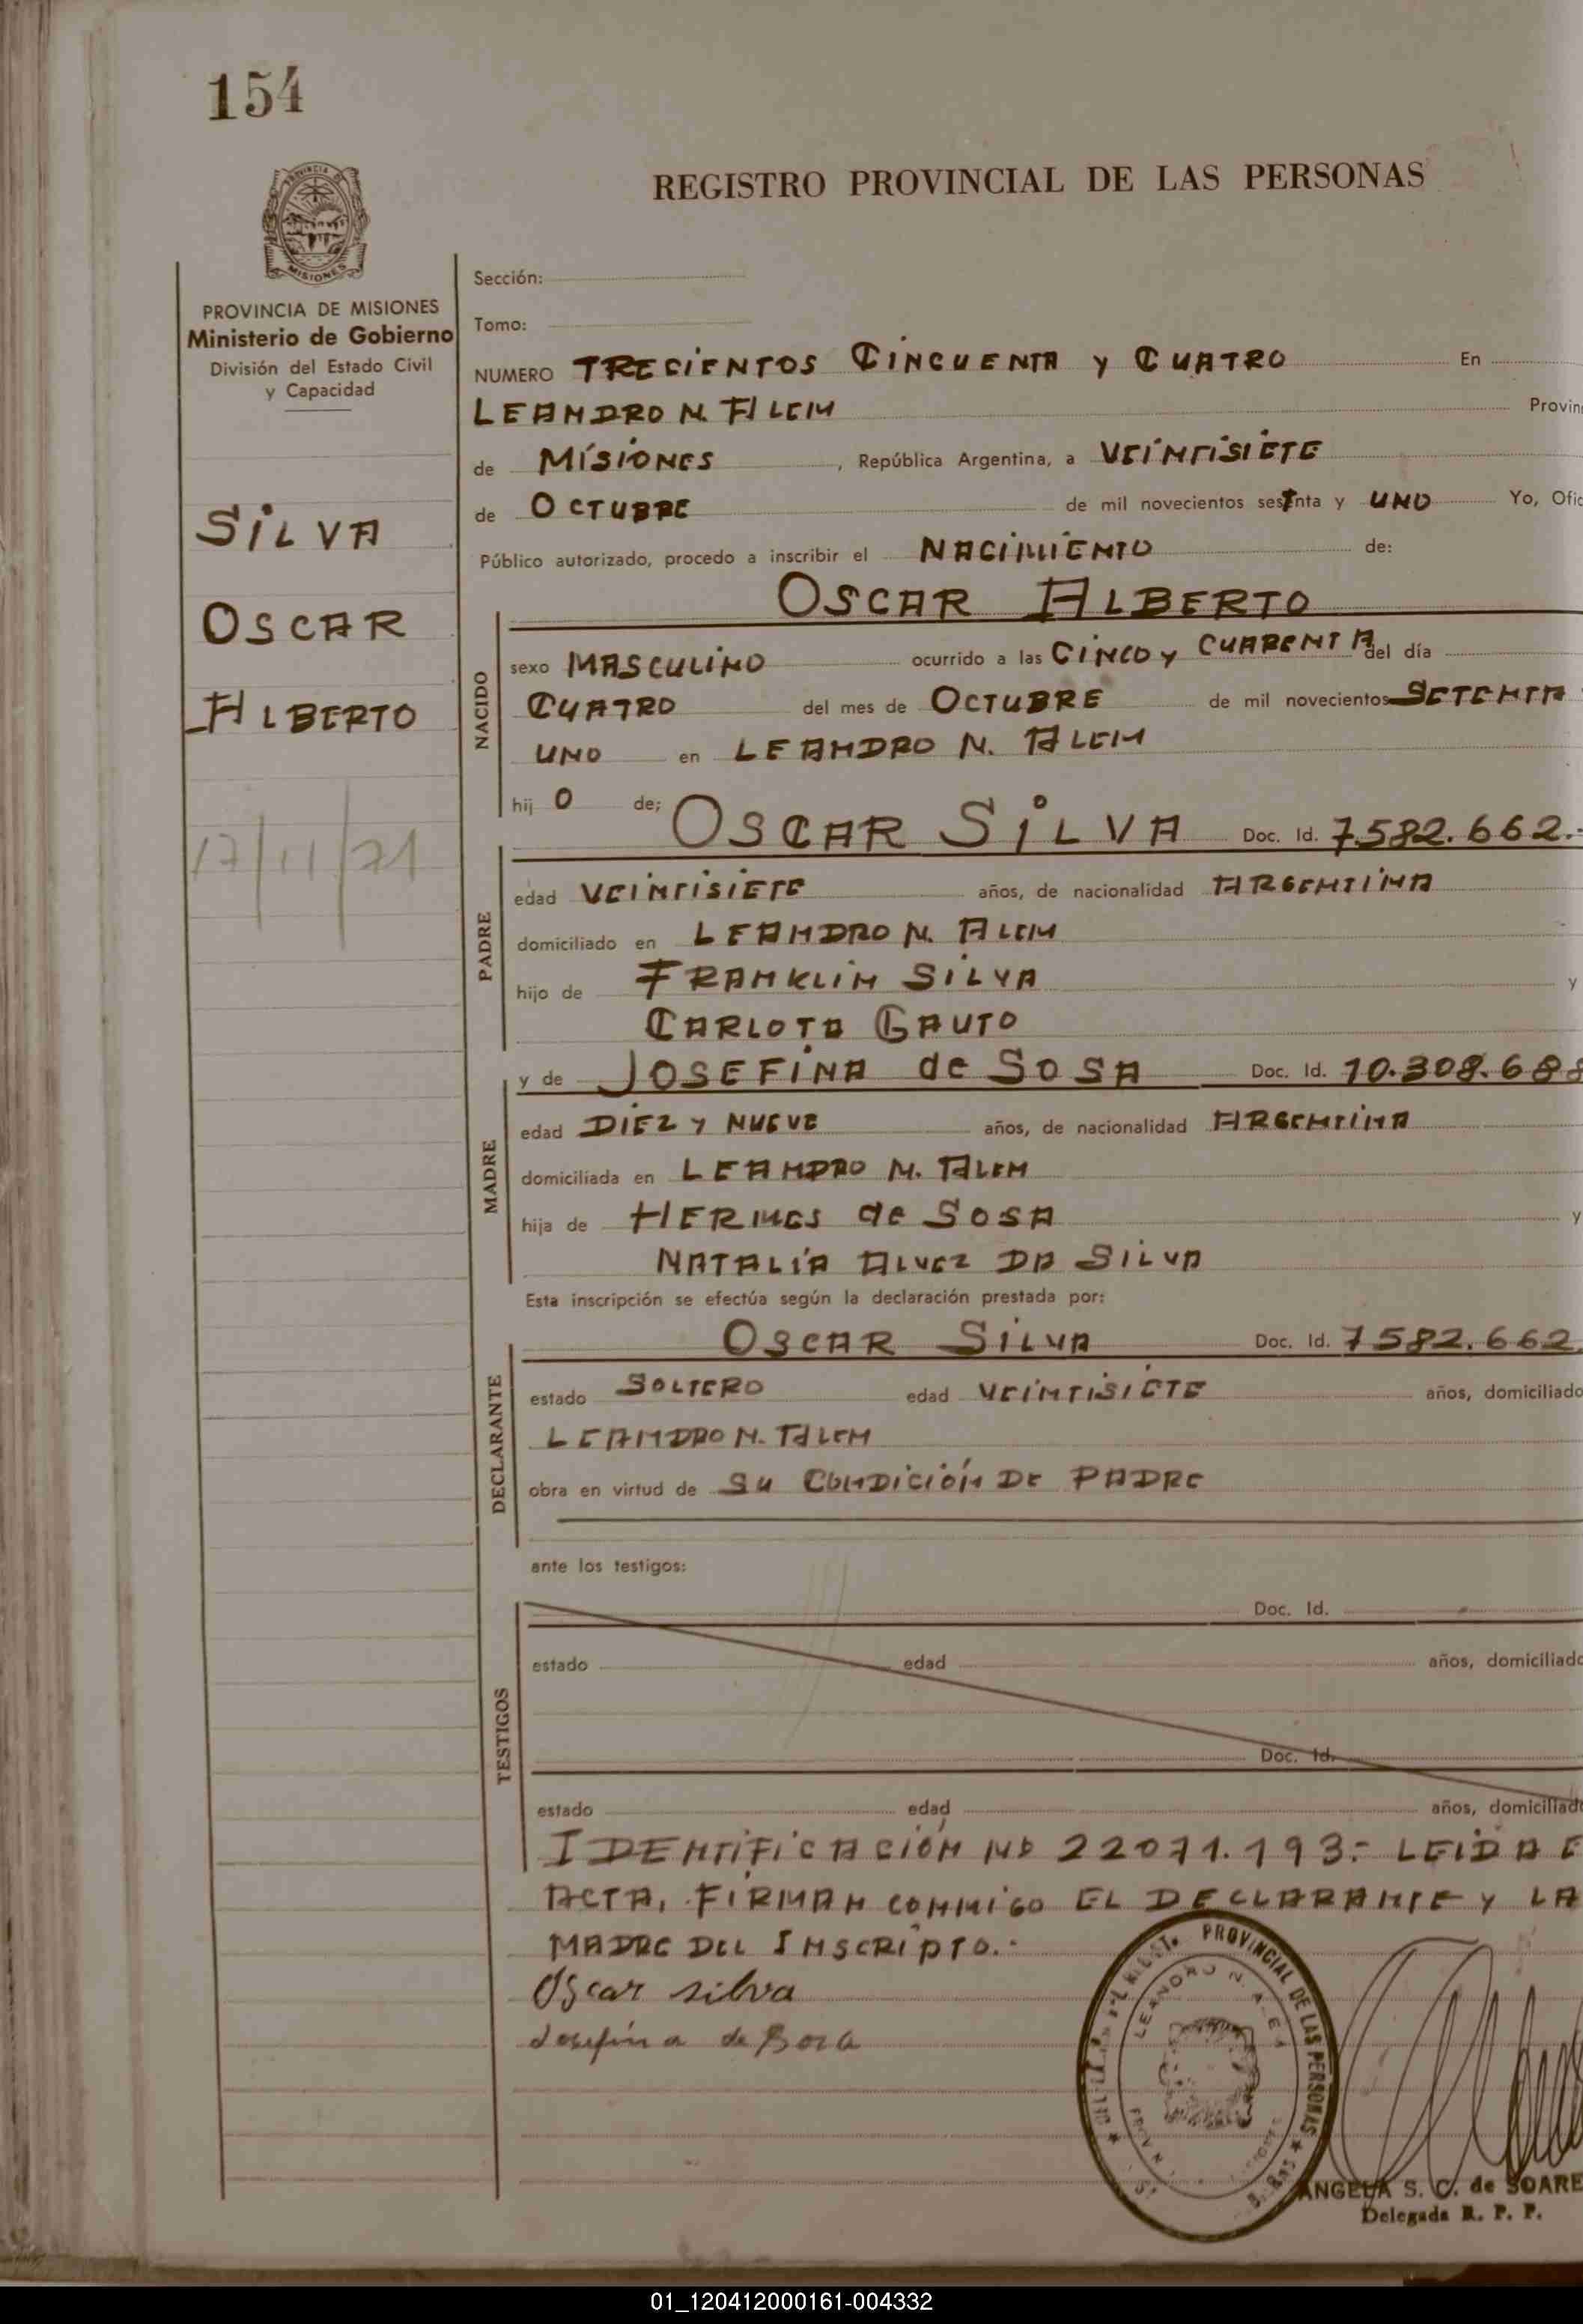 154
PROVINCIA DE MISIONES
REGISTRO PROVINCIAL DE LAS PERSONAS
PROVINCIA DE MISIONES
Ministerio de Gobierno
División del Estado Civil
y Capacidad
SILVA
OSCAR
ALBERTO
17/11/71
Sección:
Tomo:
NUMERO TRECIENTOS CINCUENTA y CUATRO En
LEANDRO N. ALEM Provin
de MISIONES, República Argentina, a VEINTISIETE
de OCTUBRE de mil novecientos setenta y UNO Yo, Ofic
Público autorizado, procedo a inscribir el NACIMIENTO de:
OSCAR ALBERTO
NACIDO
sexo MASCULINO ocurrido a las CINCO y CUARENTA del día
CUATRO del mes de OCTUBRE de mil novecientos SETENTA
UNO en LEANDRO N. ALEM
hijo de; OSCAR SILVA Doc. Id. 7.582.662.-
PADRE
edad VEINTISIETE años, de nacionalidad ARGENTINA
domiciliado en LEANDRO N. ALEM
hijo de FRANKLIN SILVA y
CARLOTA GAUTO
y de JOSEFINA de SOSA Doc. Id. 10.308.688
MADRE
edad DIEZ y NUEVE años, de nacionalidad ARGENTINA
domiciliada en LEANDRO N. ALEM
hija de HERMES de SOSA y
NATALIA ALVEZ DA SILVA
Esta inscripción se efectúa según la declaración prestada por:
OSCAR SILVA Doc. Id. 7582.662
DECLARANTE
estado SOLTERO edad VEINTISIETE años, domiciliado
LEANDRO N. ALEM
obra en virtud de SU CONDICIÓN DE PADRE
ante los testigos:
TESTIGOS
Doc. Id.
estado edad años, domiciliado
Doc. Id.
estado edad años, domiciliado
IDENTIFICACIÓN Nº 22071.193.- LEIDA E
ACTA, FIRMAN CONMIGO EL DECLARANTE y LA
MADRE DEL INSCRIPTO.-
Oscar silva
Josefina de Soza
PROVINCIAL DE LAS PERSONAS
LEANDRO N. ALEM
ANGELA S. C. de SOARE
Delegada R. P. P.
01_120412000161-004332